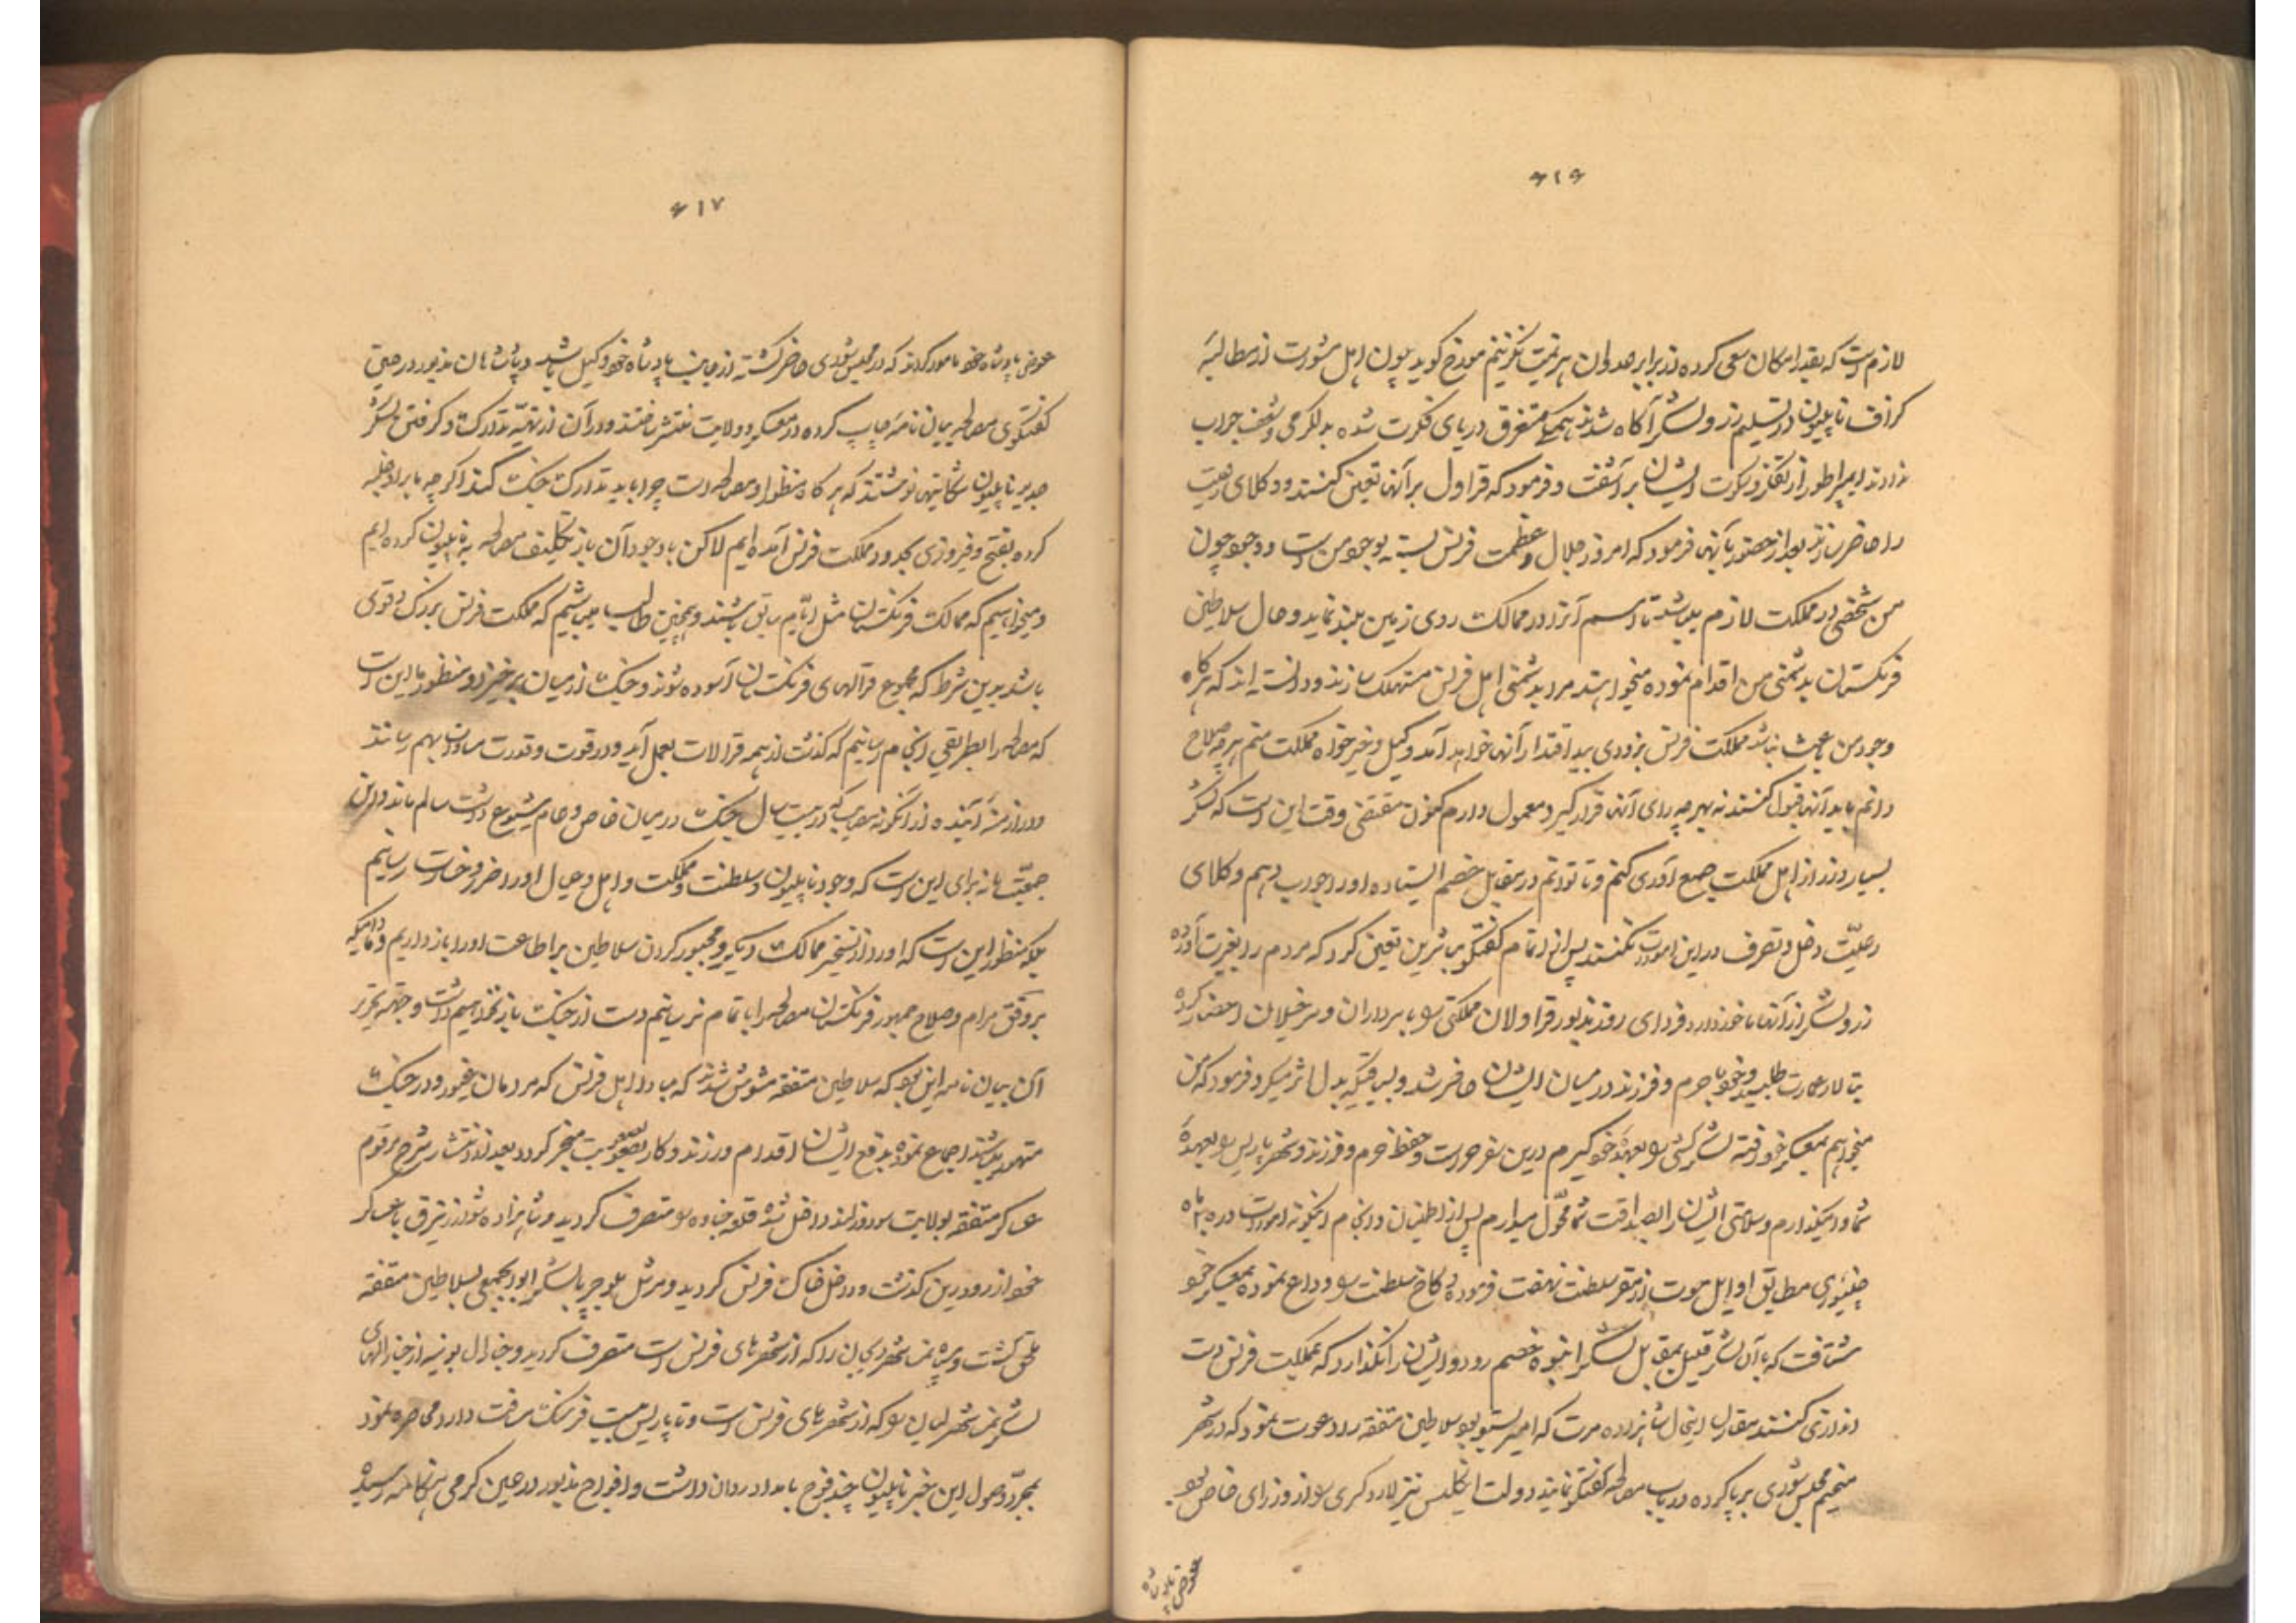 ۶۱۶
لازم است که بقدر امکان سعی کرده در برابر عدوان هزیمت نگزینم مورخ گوید چون اهل مشورت از مطالبهٔ
گزاف ناپلیون در تسلیم زر و لشکر آگاه شدند همگی مستغرق دریای فکرت شده بدلگرمی و شعف جواب
ندادند ایمپراطور از تفکر و سکوت ایشان برآشفت و فرمود که قراول بر آنها تعیین کنند و وکلای رعیت
را حاضر سازند بعد از حضور بآنها فرمود که امروز جلال و عظمت فرنس بسته بوجود من است و وجود چون
من شخصی در مملکت لازم میباشد تا اسم آنرا در ممالک روی زمین بلند نماید و حال سلاطین
فرنگستان بدشمنی من اقدام نموده میخواهند مرا بدشمنی اهل فرنس مستهلک سازند و دانسته اند که هرگاه
وجود من باعث نباشد مملکت فرنس بزودی بید اقتدار آنها خواهد آمد وکیل و خیرخواه مملکت منم هرچه صلاح
دانم باید آنها قبول کنند نه بهرچه رای آنها قرار گیرد معمول دارم اکنون مقتضی وقت این است که لشکر
بسیار از اهل مملکت جمع آوری کنم و تا توانم در مقابل خصم ایستاده او را جواب دهم وکلای
رعیت دخل و تصرف در این امورات نکنند پس از اتمام گفتگو مباشرین تعیین کرد که مردم را بغیرت آورده
زر و لشکر از آنها ماخوذ دارد فردای روز مذبور قراولان مملکتی را با سرداران و سرخیلان احضار کرده
بتالار عمارت طلبید و خود با حرم و فرزند در میان ایشان حاضر شد و بسیاقیکه بدل اثر میکرد فرمود که من
میخواهم بمعسکر خود رفته لشکرکشی را بعهدهٔ خود گیرم درین سفر حراست و حفظ حرم و فرزند و شهر پاریس را بعهدهٔ
شما وامیگذارم و سلامتی ایشان را بصداقت شما محول میدارم پس از اطمینان و انجام اینگونه امورات در ماه
جنیوری مطابق اوایل حوت از مقر سلطنت نهضت فرموده کاخ سلطنت را وداع نموده بمعسکر خود
شتافت که با آن لشکر قلیل بمقابل لشکر انبوه خصم رود و ایشان را نگذارد که بمملکت فرنس دست
اندازی کنند مقارن اینحال شاهزاده مرت که امیر بود سلاطین متفقه را دعوت نمود که در شهر
مجلس شوری برپا کرده در باب مصالحه گفتگو نمایند دولت انگلیس نیز لارد کری را از وزرای خاص بود
عوض پادشاه
۶۱۷
عوض پادشاه خود مامور کردند که در مجلس شوری حاضر گشته از جانب پادشاه خود وکیل باشد و پادشاهان مذبور در حین
گفتگوی مصالحه بیان نامه چاپ کرده در معسکر و ولایت منتشر ساختند و در آن از تهیه تدارک و گرفتن لشکر
جدید ناپلیون شکایتها نوشتند که هرگاه منظور او مصالحه است چرا باید تدارک جنگ کند اگرچه ما بر او غلبه
کرده بفتح و فیروزی بحدود مملکت فرنس آمده ایم لاکن با وجود آن باز تکلیف مصالحه به ناپلیون کرده ایم
و میخواهیم که ممالک فرنگستان مثل ایام سابق باشند و همچنین طالب میباشیم که مملکت فرنس بزرگ و قوی
باشد بدین شرط که مجموع قرالهای فرنگستان آسوده شوند و جنگ از میان برخیزد و منظور ما این است
که مصالحه را بطریقی انجام رسانیم که گذشت از همه قرالات بعمل آید و در قوت و قدرت مساوات بهم رسانند
و در ازمنهٔ آینده از آنگونه مصایب که در بیست سال جنگ در میان خاص و عام شیوع داشت سالم مانند و این
جمعیت ما نه برای این است که وجود ناپلیون و سلطنت و مملکت و اهل و عیال او را ضرر و خسارت رسانیم
بلکه منظور این است که او را از تسخیر ممالک دیگر و مجبور کردن سلاطین بر اطاعت او را باز داریم و مادامیکه
بر وفق مرام و صلاح جمهور فرنگستان مصالحه را باتمام نرسانیم دست از جنگ باز نخواهیم داشت و جهة تحریر
آن بیان نامه این بود که سلاطین متفقه مشوش شدند که مبادا اهل فرنس که مردمان غیور و در جنگ
متهور میباشند اجماع نموده بدفع ایشان اقدام ورزند و کار بصعوبت منجر گردد بعد از انتشار شرح مرقوم
عساکر متفقه بولایت سوزرلند داخل شده قلعه را متصرف گردیدند و شاهزاده شوارزنبرق با عساکر
خود از رود رین گذشت و داخل خاک فرنس گردید و مرشل بلوچر با لشکر ابوابجمعی بسلاطین متفقه
ملحق گشت و سپاه نمسه شهر دیجان را که از شهرهای فرنس است متصرف گردید و جنرال بونیه از جنرالهای
لشکر نمسه شهر لیان را که از شهرهای فرنس است و تا پاریس بیست فرسنگ مسافت دارد محاصره نمود
بمجرد وصول این خبر ناپلیون چند فوج بامداد روان داشت و افواج مذبور در عین گرمی هنگامه رسیده